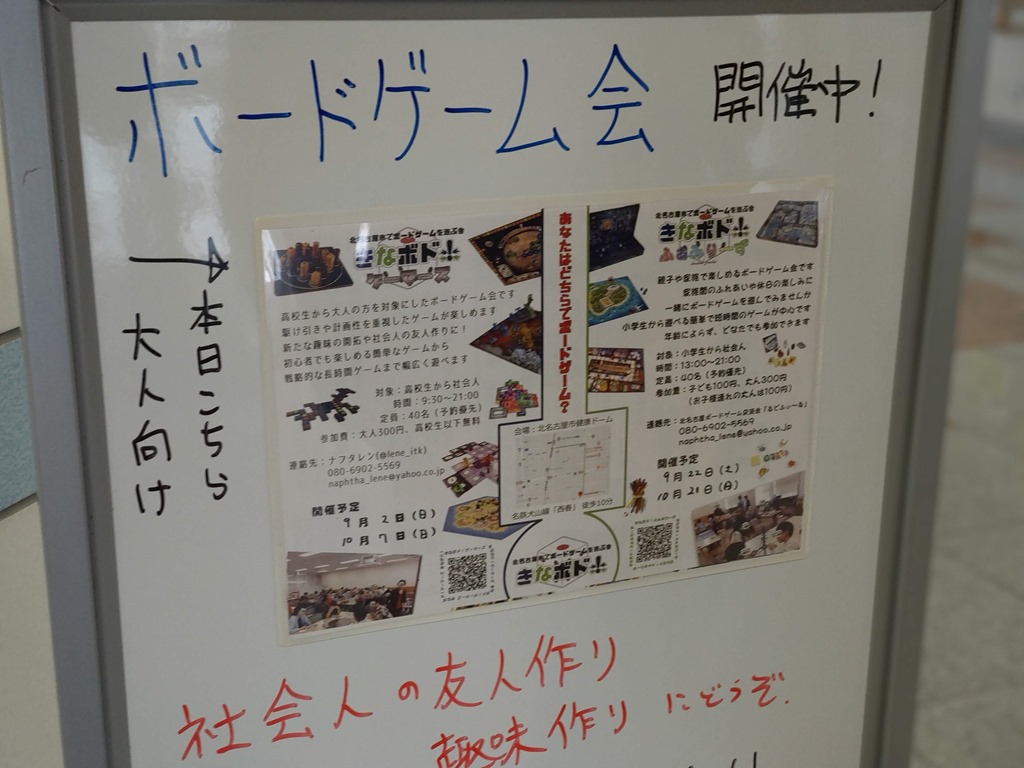 ボードゲーム会
開催中!
→本日こちら
大人向け
北名古屋市でボードゲームを遊ぶ会
きなボド!
ゲーマーズ
高校生から大人の方を対象にしたボードゲーム会です
駆け引きや計画性を重視したゲームが楽しめます
新たな趣味の開拓や社会人の友人作りに!
初心者でも楽しめる簡単なゲームから
戦略的な長時間ゲームまで幅広く遊べます
対象:高校生から社会人
時間:9:30~21:00
定員:40名(予約優先)
参加費:大人300円、高校生以下無料
連絡先:ナフタレン(@lene_itk)
080-6902-5569
naphtha_lene@yahoo.co.jp
開催予定
9月2日(日)
10月7日(日)
あなたはどちらで遊ぶ?ボードゲーム?
会場:北名古屋市健康ドーム
名鉄犬山線「西春」徒歩10分
北名古屋市でボードゲームを遊ぶ会
きなボド!
北名古屋市でボードゲームを遊ぶ会
きなボド!
ふぁみりーず
親子や家族で楽しめるボードゲーム会です
家族間のふれあいや休日の楽しみに
一緒にボードゲームを遊んでみませんか
小学生から遊べる簡単で短時間のゲームが中心です
年齢によらず、どなたでも参加できます
対象:小学生から社会人
時間:13:00~21:00
定員:40名(予約優先)
参加費:子ども100円、大人300円
(お子様連れの大人は100円)
連絡先:北名古屋ボードゲーム交流会「るどふぃーる」
080-6902-5569
naphtha_lene@yahoo.co.jp
開催予定
9月22日(土)
10月21日(日)
社会人の友人作り
趣味作りにどうぞ.